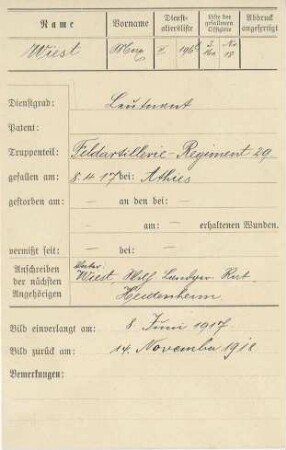 Name Vorname Dienstaltersliste Liste der gefallenen Offiziere Abdruck angefertigt
Wiest Max I
Dienstgrad: Leutnant
Patent:
Truppenteil: Feldartillerie-Regiment 29
gefallen am: 8.4.17 bei: Athies
gestorben am: — an den bei: —
— am: — erhaltenen Wunden.
vermißt seit: — bei: —
Anschreiben der nächsten Angehörigen
Vater:
Wiest,
Heidenheim
Bild einverlangt am: 8. Juni 1917
Bild zurück am: 14. November 1918
Bemerkungen: